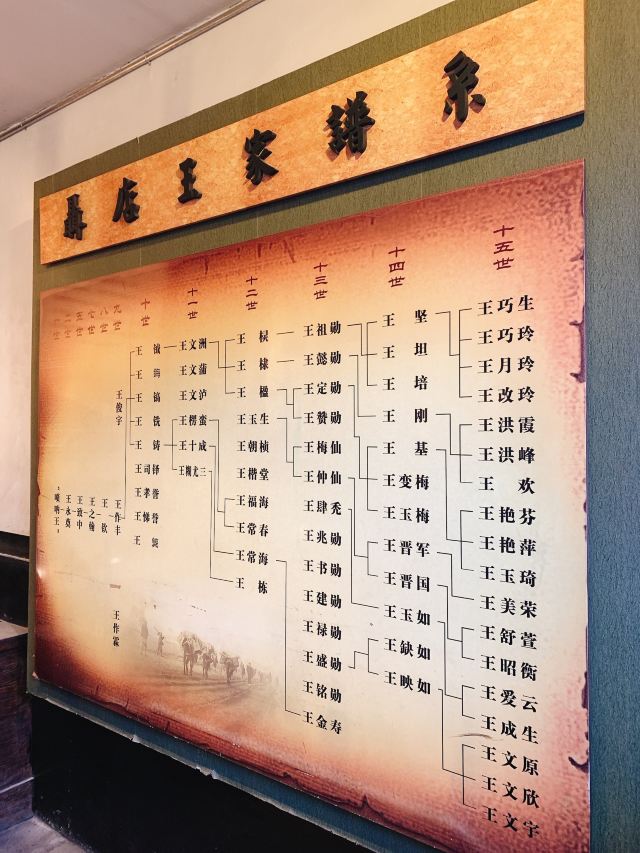 聶店王家譜系
五世
七世
八世
九世
十世
十一世
十二世
十三世
十四世
十五世
王永奠
王致中
王之翰
王钦
王作丰
王俊宇
王作霖
王钺
王镐
王铣
王铸
王司铎
王文洲
王文蒲
王文泸
王楞蛮
王十成
王棣
王楹
王玉生
王朝桢
王楷堂
王福海
王常春
王常海
王栋
王祖勋
王懿勋
王定勋
王赞勋
王梅仙
王仲仙
王肆秃
王兆勋
王书勋
王建勋
王禄勋
王盛勋
王铭勋
王金寿
王坚
王坦
王培
王刚
王基
王变梅
王玉梅
王晋军
王晋国
王玉如
王缺如
王映如
王巧生
王巧玲
王月玲
王改玲
王洪霞
王洪峰
王欢
王艳芬
王艳萍
王玉琦
王美荣
王舒萱
王昭衡
王爱云
王成生
王文原
王文欣
王文宇